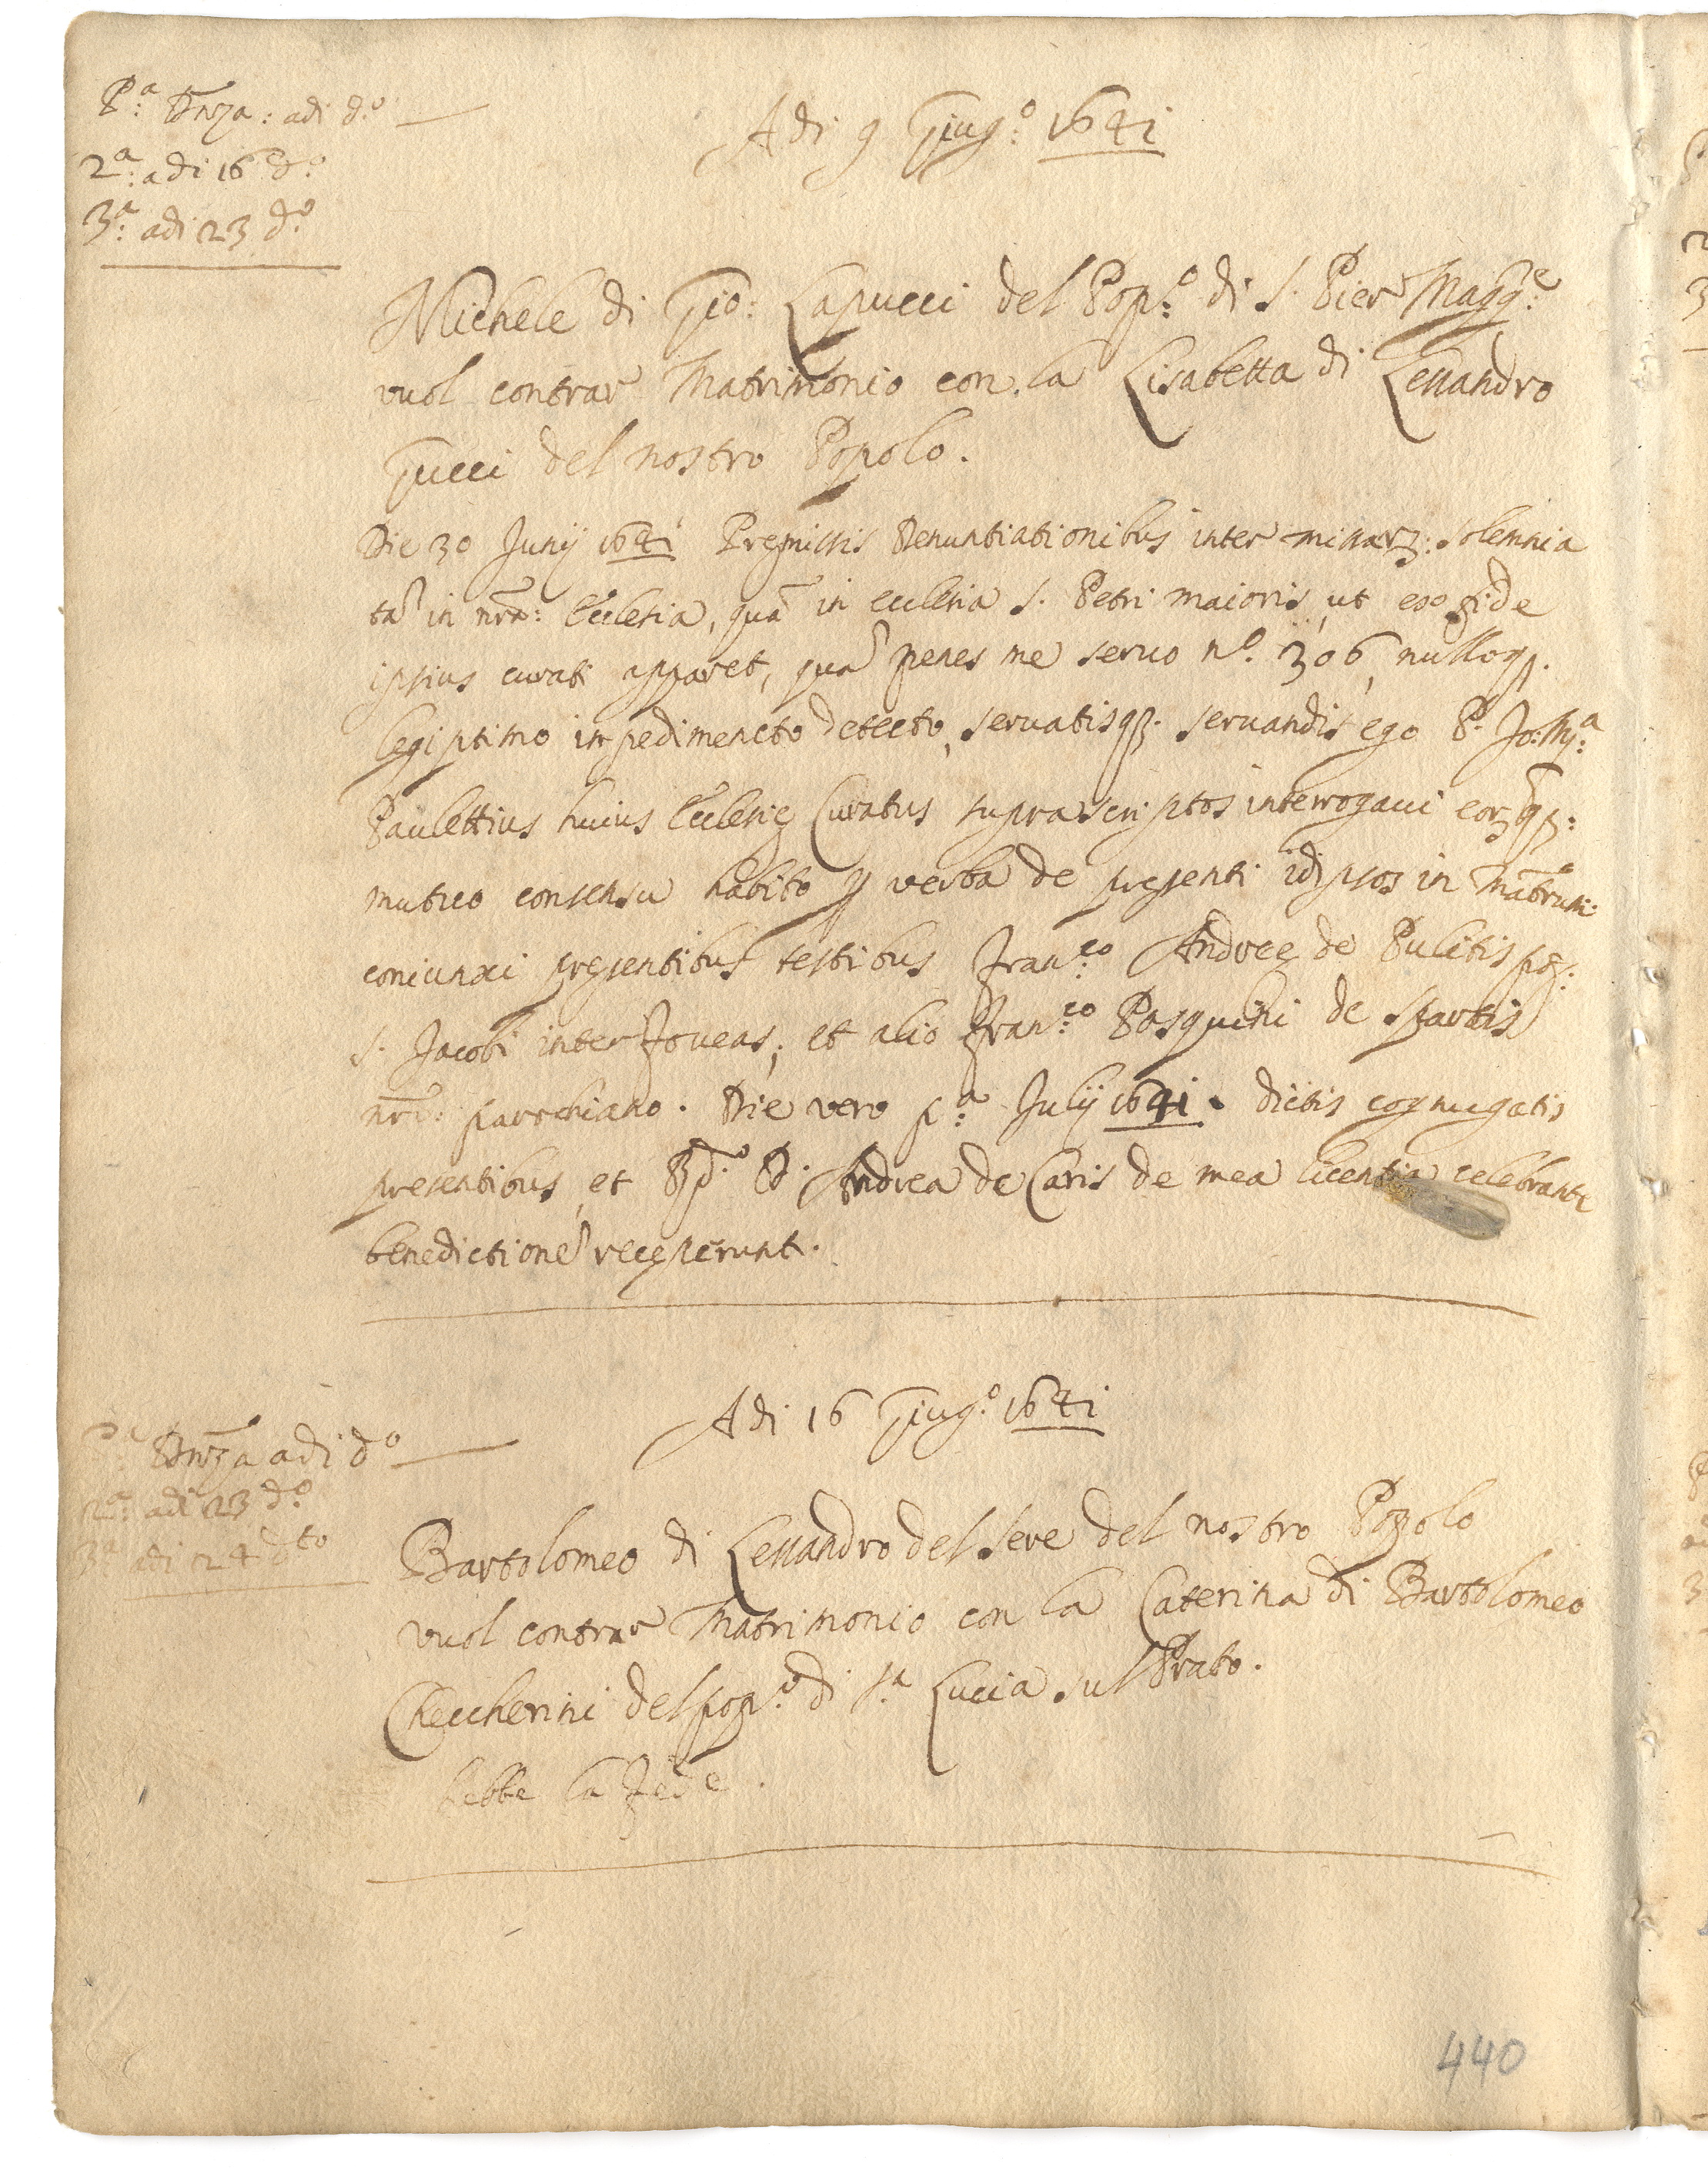 P:ª Dnza: adi d:º
2:ª adi 16 d:º
3:ª adi 23 d:º
Adi 9 Giug:º 1641
Michele di Gio: Lapucci del Pop:º di S. Pier Magg:e
vuol contrar Matrimonio con la Lisabetta di Lessandro
Gucci del nostro Popolo.
Die 30 Junij 1641 Premissis Denuntiationibus inter missarz: solemnia
tā in nrā: Ecclesia, quā in ecclesia S. Petri maioris, ut ex fide
ipsius curati apparet, quā penes me servo nº. 306, nulloqz.
legiptimo impedimento detecto, servatisqz. servandis ego P. Jo: M:ª
Paulettius huius Ecclesię Curatus suprascriptos interrogavi eorzqz:
mutuo consensu habito p verba de presenti idipsos in Matrum:
coniunxi presentibus testibus Fran:co Andreę de Pulitis poī:
S. Jacobi inter foveas; et alio Fran:co Pasquini de Sfartis
nrī: parochiano. Die vero p:ª Julij 1641. dictis coniugatis
presentibus, et Rd:º D. Andrea de Caris de mea licentia celebrante
benedictionē receperunt.
Adi 16 Giug:º 1641
Pª: Dnza adi dº
2ª: adi 23 d:º
3ª adi 24 dto
Bartolomeo di Lessandro del Sere del nostro Popolo
vuol contrar Matrimonio con la Caterina di Bartolomeo
Checcherini del pop:º di S.ª Lucia sul Prato.
hebbe la fede.
440